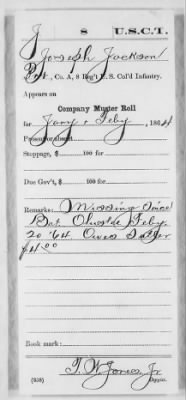 J 8 U.S.C.T.
Joseph Jackson
Pvt., Co. A, 8 Reg't U. S. Col'd Infantry.
Appears on
Company Muster Roll
for Jany & Feby, 1864
Present or absent
Stoppage, $ 100 for
Due Gov't, $ 100 for
Remarks: Missing since
Bat. Olustee Feby.
20 '64. Owes
$4.00
Book mark:
T. W. Jones, Jr
(358) Copyist.